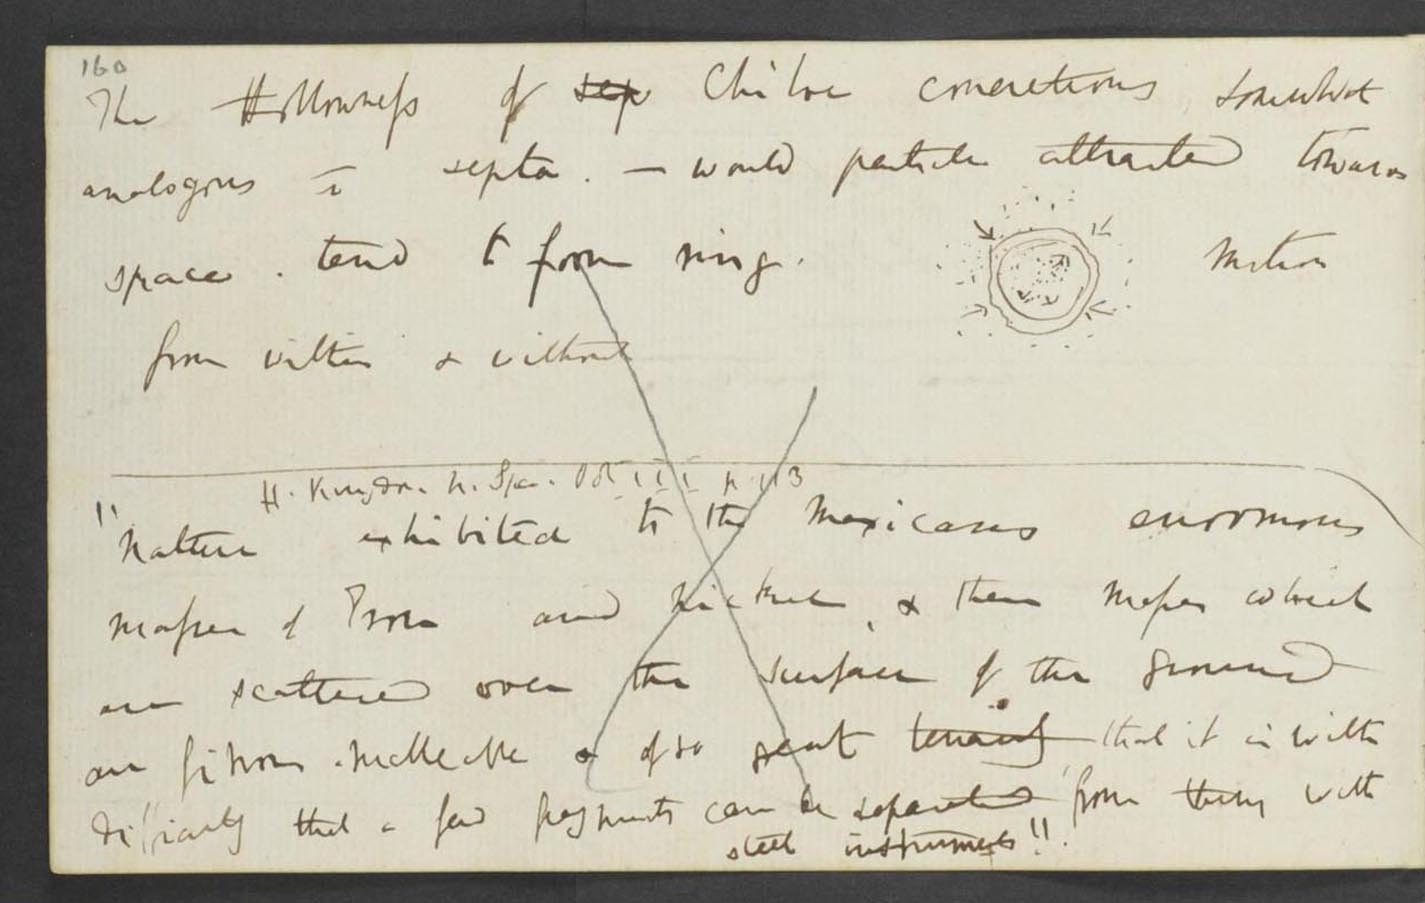 160
The Hollowness of sep Chiloe concretions, somewhat
analogous to septa. — would particle attracted towards
space. tend to form ring. Motion
from within & without
H. Kingdom. N. Spain. Vol III p 113
"Nature exhibited to the Mexicans enormous
masses of Iron and Nickel, & these masses which
are scattered over the surface of the ground
are fibrous. malleable & of so great tenacity that it is with
difficulty that a few fragments can be separated from them with
steel instruments".